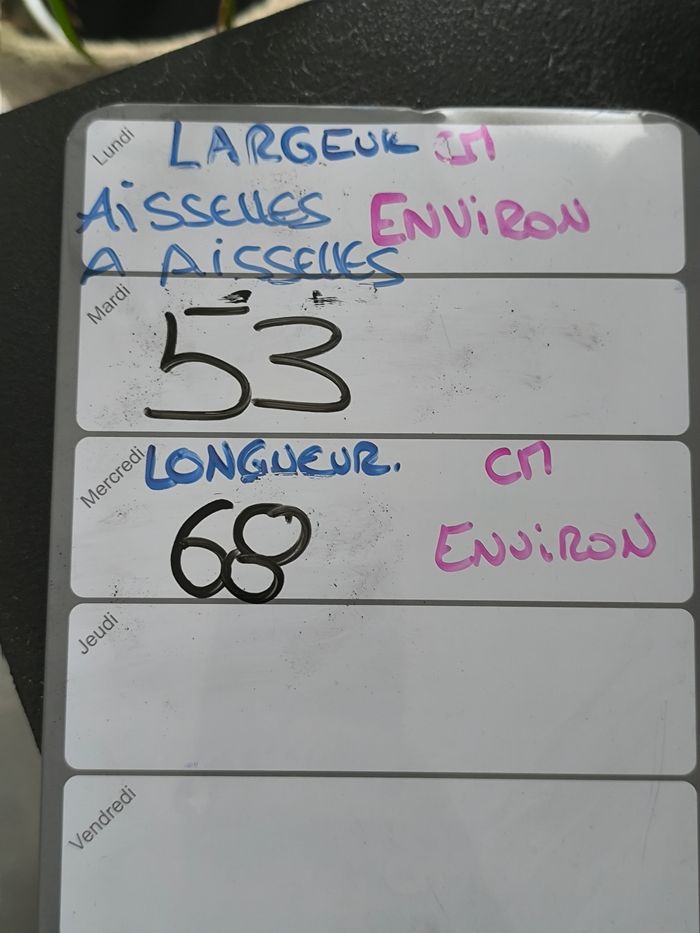 Lundi
LARGEUR CM
AiSSELLES ENViRON
A AiSSELLES
Mardi
53
Mercredi
LONGUEUR. CM
68
ENViRON
Jeudi
Vendredi